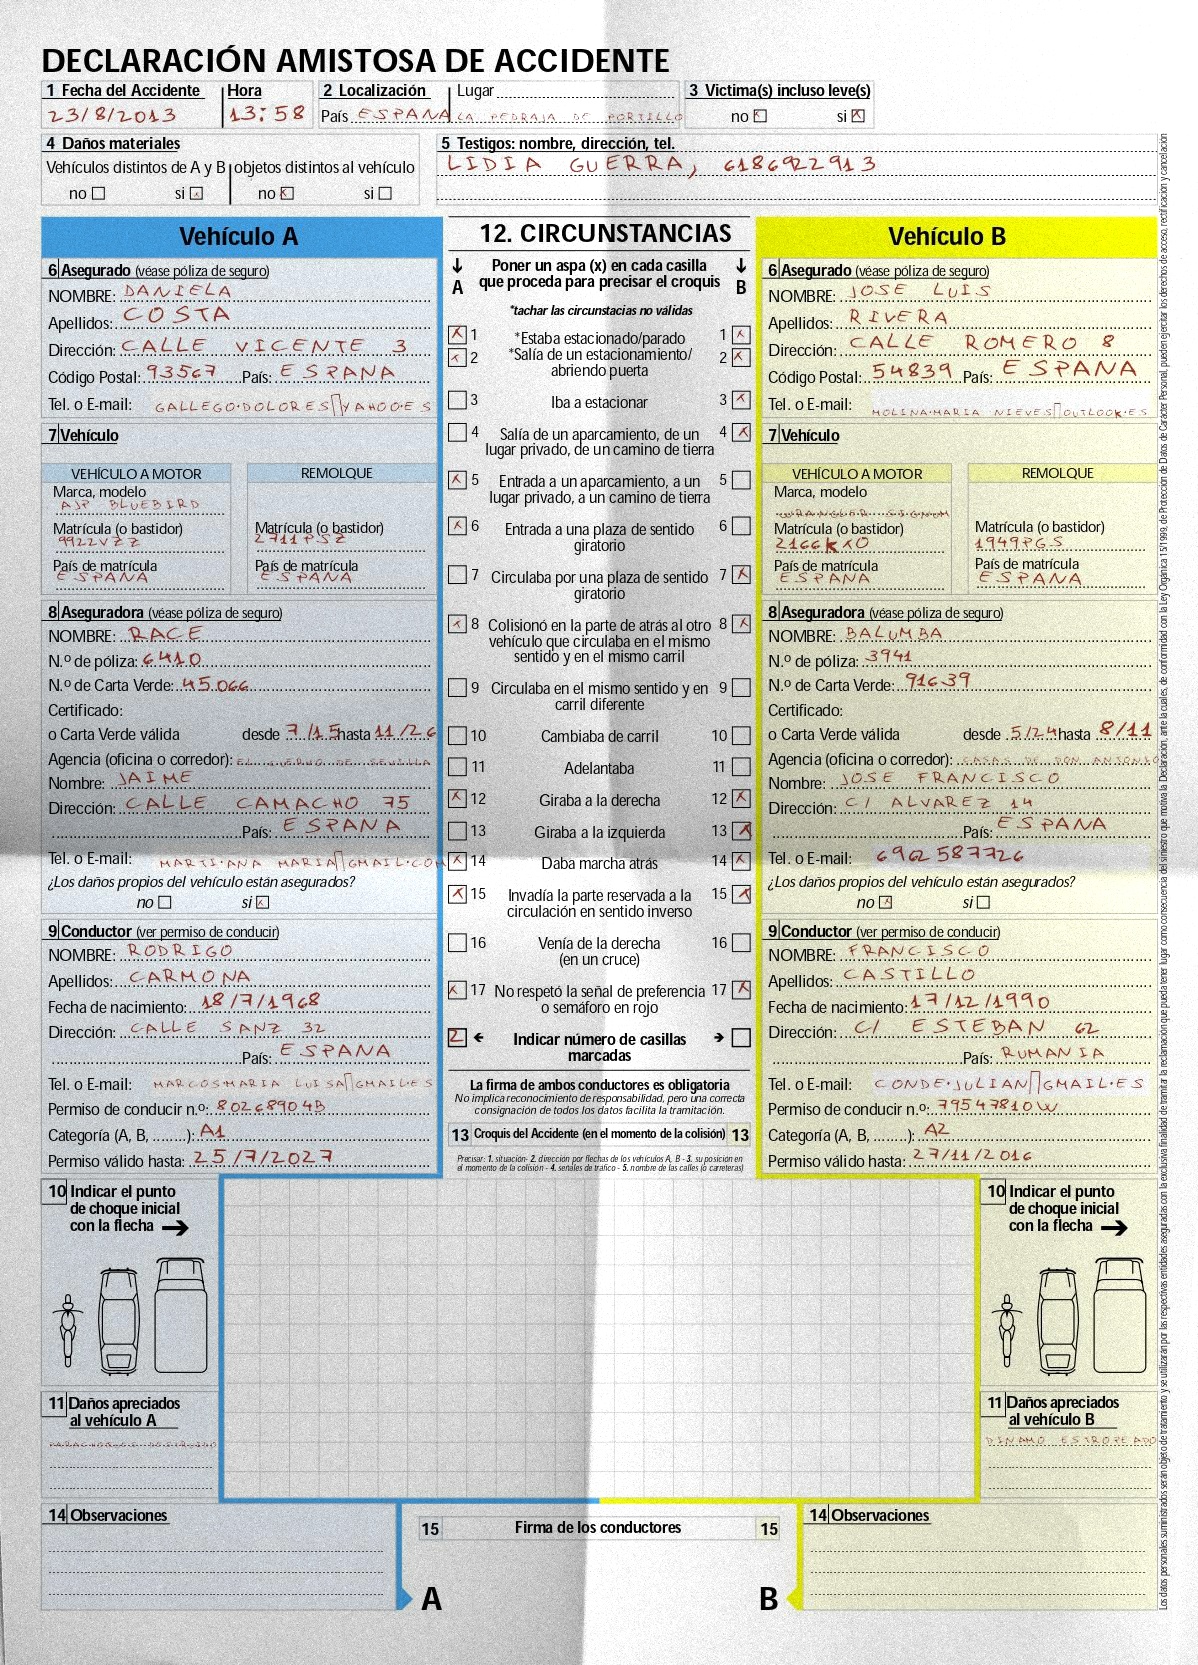 DECLARACIÓN AMISTOSA DE ACCIDENTE
1 Fecha del Accidente Hora 2 Localización Lugar 3 Victima(s) incluso leve(s)
23/8/2013 13:58 País ESPANA LA PEDRAJA DE PORTILLO no X si X
4 Daños materiales
Vehículos distintos de A y B objetos distintos al vehículo
no si X no X si
5 Testigos: nombre, dirección, tel.
LIDIA GUERRA, 6186922913
Vehículo A
6 Asegurado (véase póliza de seguro)
NOMBRE: DANIELA
Apellidos: COSTA
Dirección: CALLE VICENTE 3
Código Postal: 93567 País: ESPANA
Tel. o E-mail: GALLEGO.DOLORES YAHOO.ES
7 Vehículo
VEHÍCULO A MOTOR REMOLQUE
Marca, modelo
AJP BLUEBIRD
Matrícula (o bastidor) Matrícula (o bastidor)
9922VZZ 2711PSZ
País de matrícula País de matrícula
ESPANA ESPANA
8 Aseguradora (véase póliza de seguro)
NOMBRE: RACE
N.º de póliza: 6410
N.º de Carta Verde: 45066
Certificado:
o Carta Verde válida desde 7/15 hasta 11/26
Agencia (oficina o corredor): EL CUERVO DE SEVILLA
Nombre: JAIME
Dirección: CALLE CAMACHO 75
País: ESPANA
Tel. o E-mail: MARTI.ANA MARIA GMAIL.COM
¿Los daños propios del vehículo están asegurados?
no si X
9 Conductor (ver permiso de conducir)
NOMBRE: RODRIGO
Apellidos: CARMONA
Fecha de nacimiento: 18/7/1968
Dirección: CALLE SANZ 32
País: ESPANA
Tel. o E-mail: MARCOS.MARIA LUISA GMAIL.ES
Permiso de conducir n.º: 80268904B
Categoría (A, B, ........): A1
Permiso válido hasta: 25/7/2027
12. CIRCUNSTANCIAS
Poner un aspa (x) en cada casilla
A que proceda para precisar el croquis B
*tachar las circunstacias no válidas
X 1 *Estaba estacionado/parado 1 X
X 2 *Salía de un estacionamiento/ 2 X
abriendo puerta
3 Iba a estacionar 3 X
4 Salía de un aparcamiento, de un 4 X
lugar privado, de un camino de tierra
X 5 Entrada a un aparcamiento, a un 5
lugar privado, a un camino de tierra
X 6 Entrada a una plaza de sentido 6
giratorio
7 Circulaba por una plaza de sentido 7 X
giratorio
X 8 Colisionó en la parte de atrás al otro 8 X
vehículo que circulaba en el mismo
sentido y en el mismo carril
9 Circulaba en el mismo sentido y en 9
carril diferente
10 Cambiaba de carril 10
11 Adelantaba 11
X 12 Giraba a la derecha 12 X
13 Giraba a la izquierda 13 X
X 14 Daba marcha atrás 14 X
X 15 Invadía la parte reservada a la 15 X
circulación en sentido inverso
16 Venía de la derecha 16
(en un cruce)
X 17 No respetó la señal de preferencia 17 X
o semáforo en rojo
2 Indicar número de casillas
marcadas
La firma de ambos conductores es obligatoria
No implica reconocimiento de responsabilidad, pero una correcta
consignación de todos los datos facilita la tramitación.
13 Croquis del Accidente (en el momento de la colisión) 13
Precisar: 1. situación- 2. dirección por flechas de los vehículos A, B - 3. su posición en
el momento de la colisión - 4. señales de tráfico - 5. nombre de las calles (o carreteras)
Vehículo B
6 Asegurado (véase póliza de seguro)
NOMBRE: JOSE LUIS
Apellidos: RIVERA
Dirección: CALLE ROMERO 8
Código Postal: 54839 País: ESPANA
Tel. o E-mail: MOLINA.MARIA NIEVES OUTLOOK.ES
7 Vehículo
VEHÍCULO A MOTOR REMOLQUE
Marca, modelo
WRANGLER SIGNUM
Matrícula (o bastidor) Matrícula (o bastidor)
2166KXO 1949PGS
País de matrícula País de matrícula
ESPANA ESPANA
8 Aseguradora (véase póliza de seguro)
NOMBRE: BALUMBA
N.º de póliza: 3941
N.º de Carta Verde: 91639
Certificado:
o Carta Verde válida desde 5/24 hasta 8/11
Agencia (oficina o corredor): CASAS DE DON ANTONIO
Nombre: JOSE FRANCISCO
Dirección: C/ ALVAREZ 14
País: ESPANA
Tel. o E-mail: 6962587726
¿Los daños propios del vehículo están asegurados?
no X si
9 Conductor (ver permiso de conducir)
NOMBRE: FRANCISCO
Apellidos: CASTILLO
Fecha de nacimiento: 17/12/1990
Dirección: C/ ESTEBAN 62
País: RUMANIA
Tel. o E-mail: CONDE.JULIAN GMAIL.ES
Permiso de conducir n.º: 79547810W
Categoría (A, B, ........): A2
Permiso válido hasta: 27/11/2016
10 Indicar el punto
de choque inicial
con la flecha
11 Daños apreciados
al vehículo A
10 Indicar el punto
de choque inicial
con la flecha
11 Daños apreciados
al vehículo B
DINAMO ESTROPEADO
14 Observaciones
15 Firma de los conductores 15
A B
14 Observaciones
Los datos personales suministrados serán objeto de tratamiento y se utilizarán por las respectivas entidades aseguradas con la exclusiva finalidad de tramitar la reclamación que pueda tener lugar como consecuencia del siniestro que motiva la Declaración, ante la cuales, de conformidad con la Ley Orgánica 15/1999, de Protección de Datos de Carácter Personal, pueden ejercitar los derechos de acceso, rectificación y cancelación